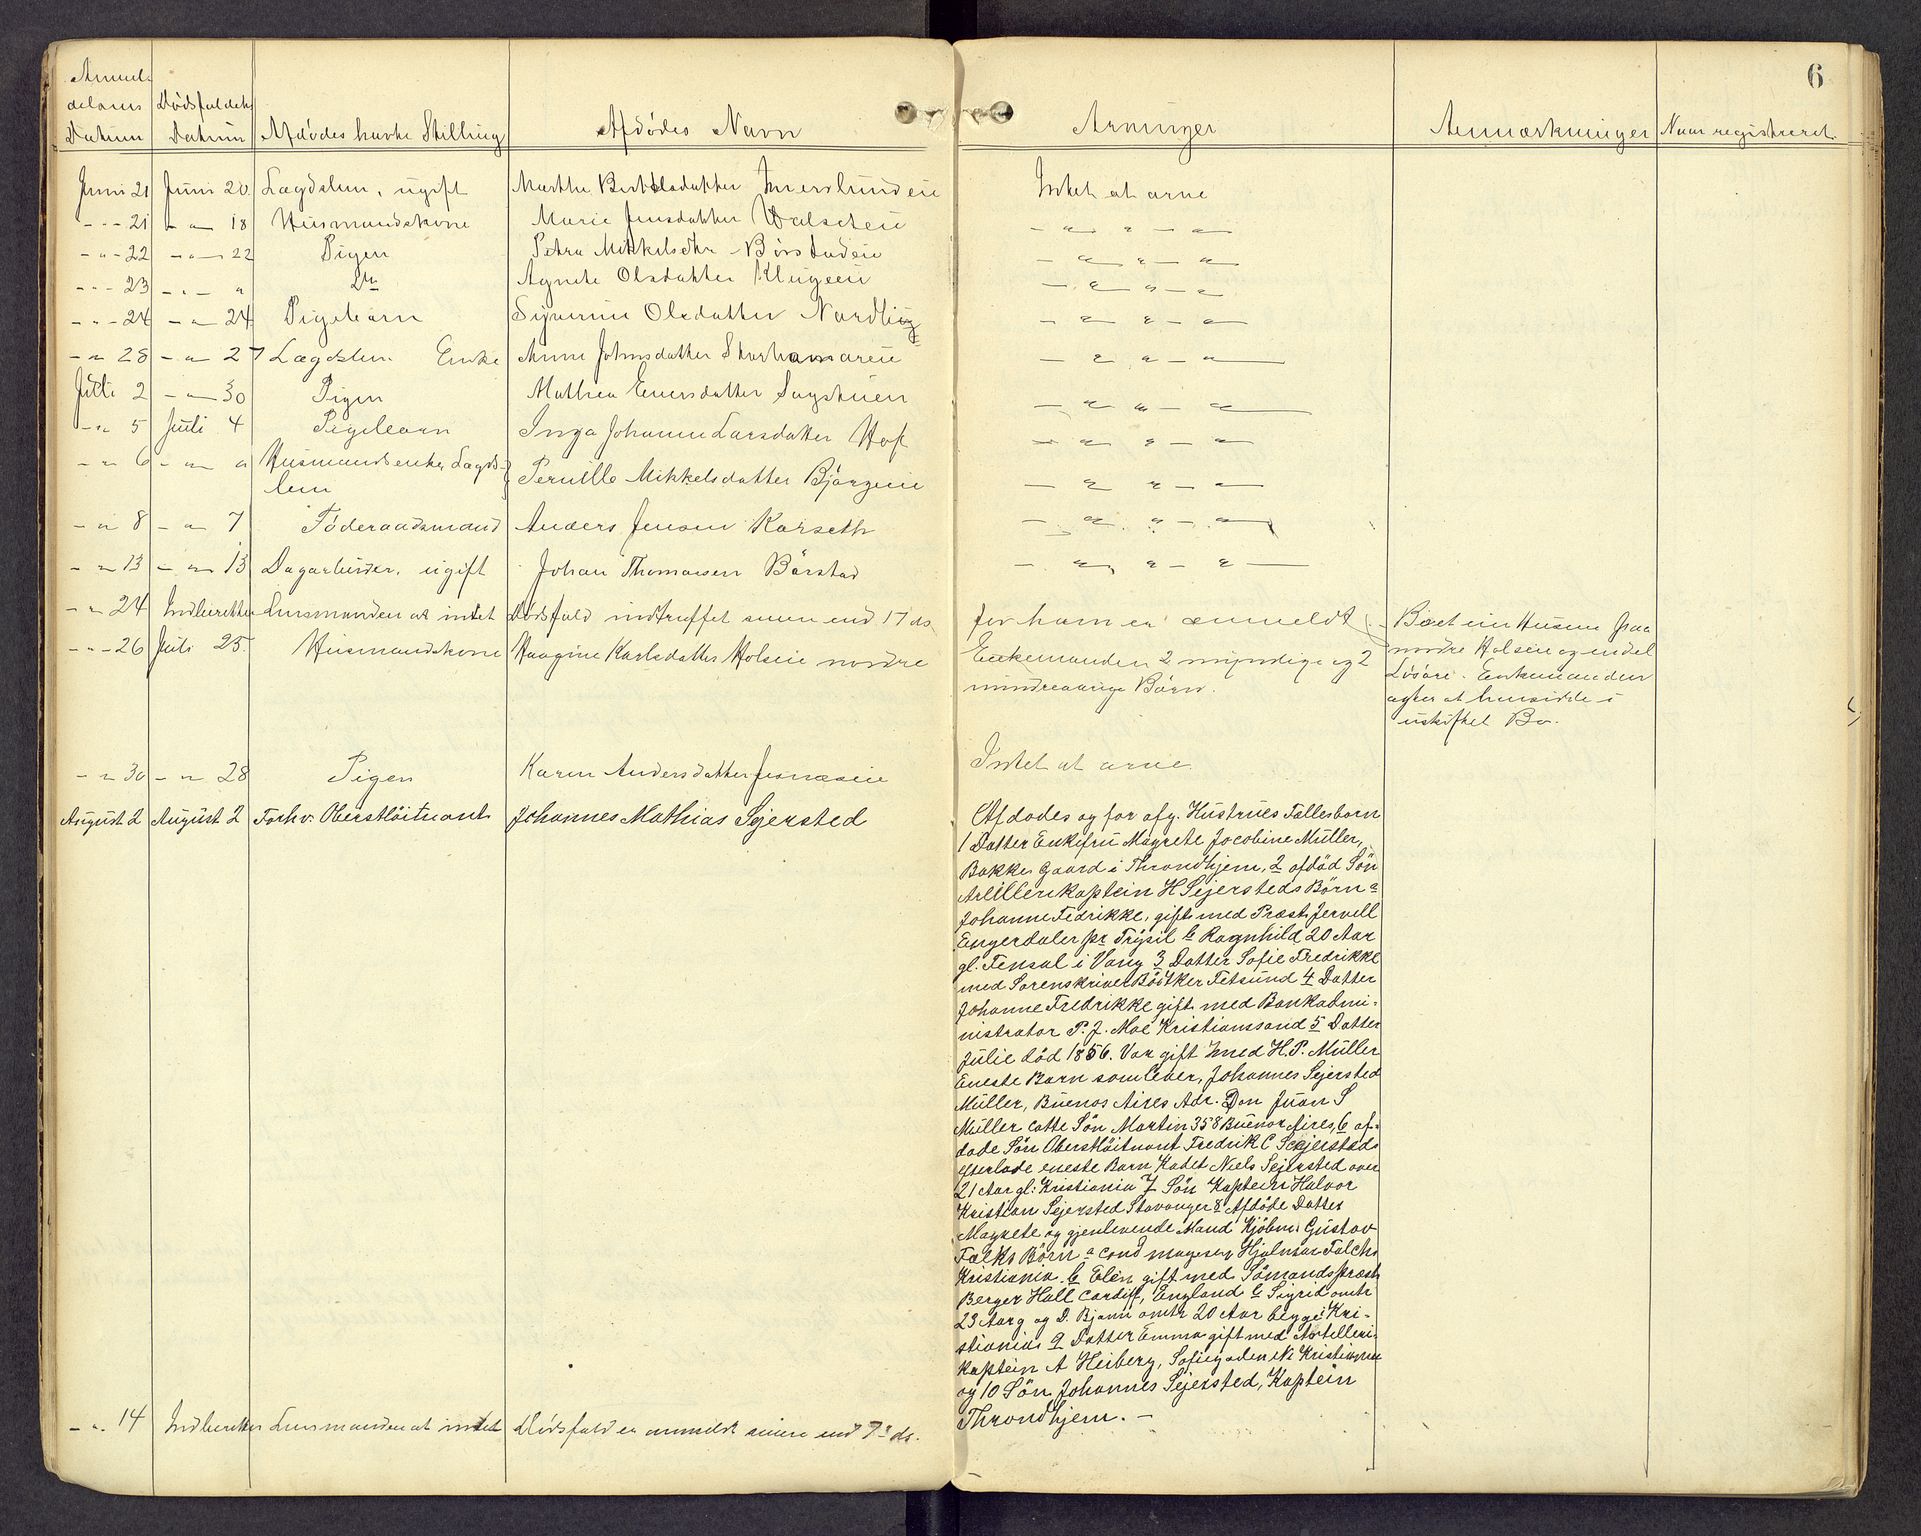 6
Anmel-
delsens Dødsfaldets
Datum Datum Afdødes havte Stilling Afdødes Navn Arvinger Anmærkninger Naar registreret.
Juni 21 Juni 20 Lægdslem, ugift Marthe Bertelsdatter Imerslundeie Intet at arve
- " - 21 - " - 18 Husmandskone Marie Jensdatter - " " - "
- " - 22 - " - 22 Pigen Petra Mikkelsdtr Børstadeie - " " - "
- " - 23 - " - " Do Agnete Olsdatter Klugeeie - " " - "
- " - 24 - " 24 Pigebarn Olsdatter Nordli - " " - "
- " 28 - " 27 Lægdslem Enke Anne Johnsdatter Storhamareie - " " - "
Juli 2 - " 30 Pigen Mathea Evensdatter Sagstuen - " " - "
- " 5 Juli 4 Pigebarn Inga Johanne Larsdatter Hof - " " - "
- " 6 - " " Husmandsenke, Lægds-
lem Pernille Mikkelsdatter Bjørgeeie - " " - "
- " 8 - " 7 Føderaadsmand Anders Jensen Karseth - " " - "
- " 13 - " 13 Dagarbeider, ugift Johan Thomasen Børstad - " " - "
- " 24 Indberetter Lensmanden at intet Dødsfald indtruffet senere end 17 ds. for ham er anmeldt
- " - 26 Juli 25. Husmandskone Haagine Karlsdatter Holseie nordre Enkemanden 2 myndige og 2
mindreaarige Børn.
Boet eier Husene paa
nordre Holseie og endel
Løsøre. Enkemanden
agter at hensidde i
uskiftet Bo.
- " 30 - " 28 Pigen Karen Andersdatter Jesnæseie Intet at arve
August 2 August 2 Forhv. Oberstløitnant Johannes Mathias Sejersted
Afdødes og for afg. Hustrues Fællesbørn
1 Datter Enkefru Magrete Jocobine Müller,
Bakke Gaard i Throndhjem, 2 afdød Søn
Artillerikaptein H Sejersteds Børn a
Johanne Fedrikke, gift med Præst Jervell
Engerdalen pr Trysil b Ragnhild 20 Aar
gl. Fensal i Vang 3 Datter Sofie Fredrikke
med Sorenskriver Bödtker Fetsund 4 Datter
Johanne Fredrikke gift med Bankadmi-
nistrator P. J. Moe Kristianssand 5 Datter
Julie död 1856. Var gift med H. P. Müller
Eneste Barn som lever, Johannes Sejersted
Müller, Buenos Aires Adr. Don Juan S
Müller calle Sön Martin 358 Buenos Aires, 6 af-
døde Søn Oberstløitnant Fredrik C Sejersteds
efterladte eneste Barn Kadet Niels Sejersted over
21 Aar gl: Kristiania 7 Søn Kaptein Halvor
Kristian Sejersted Stavanger 8 Afdøde Datter
Magrete og gjenlevende Mand Kjøbm. Gustav
Falks Børn a cand Hjalmar Falch
Kristiania. b Elen gift med Sømandspræst
Berger Hall Cardiff, England c Sigrid omtr
23 Aar g og D. Bjarne omtr 20 Aar begge Kri-
stiania 9 Datter Emma gift med Artilleri-
kaptein A Heiberg, Sofiegaden Kristiania
og 10 Søn Johannes Sejersted, Kaptein
Throndhjem. -
- " 14 Indberetter Lensmanden at intet Dødsfald er anmeldt senere end 7de ds.